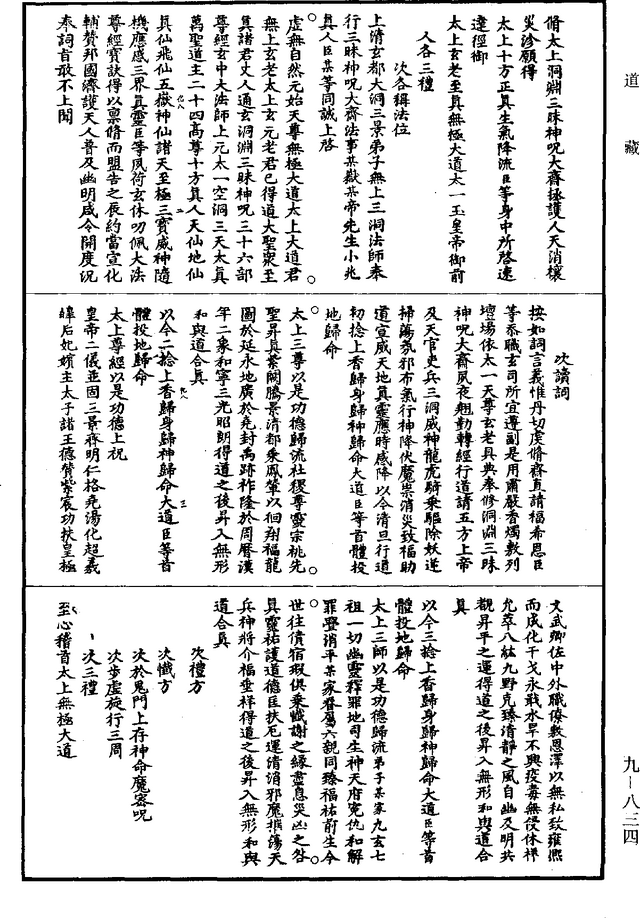 道藏
脩太上洞淵三昧神呪大齋拯護人天消禳
災沴願得
太上十方正真生氣降流臣等身中所啓速
達徑御
太上玄老至真無極大道太一玉皇帝御前
人各三禮
次各稱法位
上清玄都大洞三景弟子無上三洞法師奉
行三昧神呪大齋法事某嶽某帝先生小兆
真人臣某等同誠上啓
虛無自然元始天尊無極大道太上大道君
無上玄老太上玄元老君已得道大聖衆至
真諸君丈人通玄洞淵三昧神呪三十六部
尊經玄中大法師上元太一空洞三天太真
萬聖道主二十四高尊十方真人天仙地仙
真仙飛仙五嶽神仙諸天至極三寶威神隨
機應感三界真靈臣等夙荷玄休叨佩大法
尊經寶訣得以稟脩而盟告之辰約當宣化
輔贊邦國濟護天人普及幽明咸令開度況
奉詞旨敢不上聞
次讀詞
按如詞言義惟丹切虔脩齋直請福希恩臣
等忝職玄司所宜遵副是用肅嚴香燭敷列
壇場依太一天尊玄老具典奉修洞淵三昧
神呪大齋夙夜翹勤轉經行道請五方上帝
及天官吏兵三洞威神龍虎騎乗驅除妖逆
掃蕩氛邪布氣行神降伏魔祟消災致福助
道宣威天地真靈應時感降以今清旦行道
初捻上香歸身歸神歸命大道臣等首體投
地歸命
太上三尊以是功德歸流社稷尊靈宗祧先
聖昇真紫闕騰景清都乗鳳輦以徊翔福龍
圖於延永地廣於堯封禹跡祚隆於周曆漢
年二象和寧三光昭朗得道之後昇入無形
和與道合真
以今二捻上香歸身歸神歸命大道臣等首
體投地歸命
太上尊經以是功德上祝
皇帝二儀並固三景齊明仁格堯湯化超羲
皞后妃嬪主太子諸王德贊紫宸功扶皇極
文武卿佐中外職僚敷恩澤以無私致雍熙
而成化干戈永戢水旱不興疫毒無侵休祥
允萃八紘九野克臻清靜之風自幽及明共
覩昇平之運得道之後昇入無形和與道合
真
以今三捻上香歸身歸神歸命大道臣等首
體投地歸命
太上三師以是功德歸流弟子某家九玄七
祖一切幽靈釋罪地司生神天府寃仇和解
罪釁消平某家眷屬六親同臻福祐前生今
世往債宿瑕俱乗懺謝之緣盡息災凶之咎
真靈祐護道德匡扶厄運清消邪魔摧蕩天
兵神將介福垂祥得道之後昇入無形和與
道合真
次禮方
次懺方
次步虛旋行三周
次於鬼門上存神命魔密呪
次三禮
至心稽首太上無極大道
九–八三四